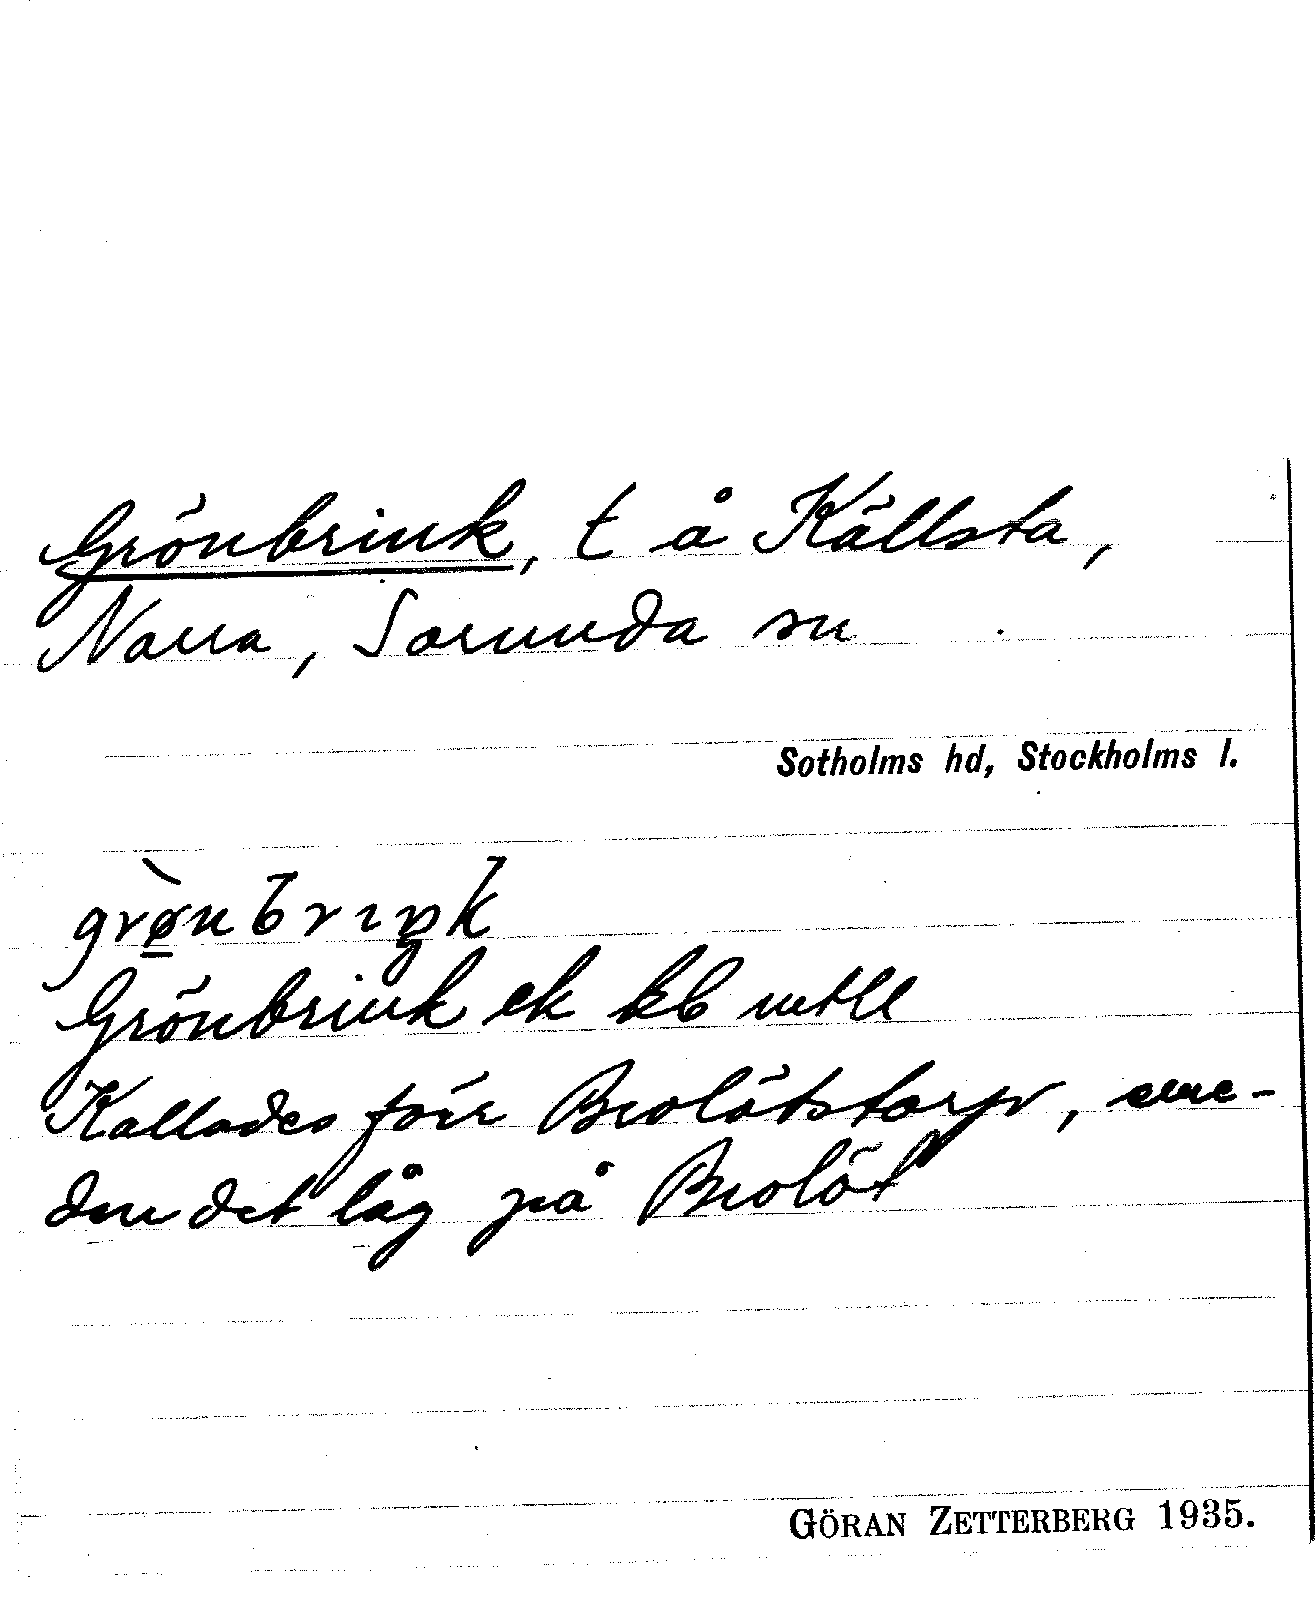 Grönbrink, t å Källsta,
Norra, Sorunda sn
Sotholms hd, Stockholms l.
grø̀nbrıŋk
Grönbrink ek kb mtll
Kallades förr Brolötstorp, eme-
dan det låg på Brolöt
GÖRAN ZETTERBERG 1935.